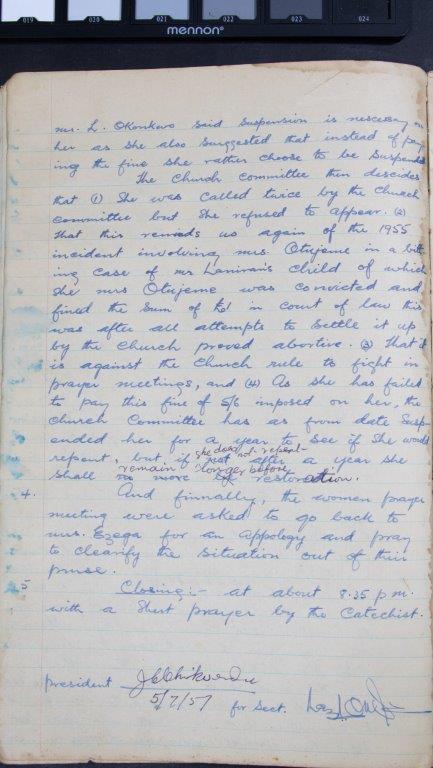 019 020 021 022 023 024
mennon®
Mr. L. Okonkwo said suspension is necessary on
her as she also suggested that instead of pay
ing the fine she rather choose to be suspended
The Church Committee then descides
that (1) She was called twice by the Church
Committee but she refused to appear. (2)
That this reminds us again of the 1955
incident involving mrs. Otujeme in a bitt
ing case of mr Laniran's child of which
She mrs Otujeme was convicted and
fined the sum of in court of law this
was after all attempts to settle it up
by the Church proved abortive. (3) That it
is against the Church rule to fight in
prayer meetings, and (4) As she has failed
to pay this fine of 5/6 imposed on her, the
Church Committee has as from date Susp-
ended her for a year to see if she would
repent, but if she does not repent after a year she
shall remain longer before restoration.
4. And finnally, the women prayer
meeting were asked to go back to
mrs. Ezega for an appology and pray
to clearify the situation out of their
purse.
5 Closing:- at about 8.35 p.m.
with a Short prayer by the Catechist.
president
5/7/57
for Sect.